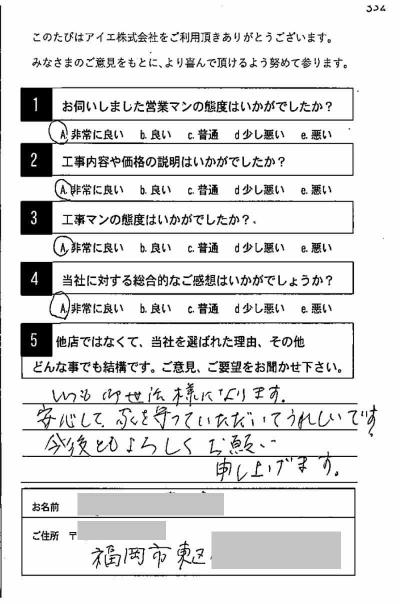 332
このたびはアイエ株式会社をご利用頂きありがとうございます。
みなさまのご意見をもとに、より喜んで頂けるよう努めて参ります。
1 お伺いしました営業マンの態度はいかがでしたか？
A.非常に良い b.良い c.普通 d少し悪い e.悪い
2 工事内容や価格の説明はいかがでしたか？
A.非常に良い b.良い c.普通 d少し悪い e.悪い
3 工事マンの態度はいかがでしたか？
A.非常に良い b.良い c.普通 d少し悪い e.悪い
4 当社に対する総合的なご感想はいかがでしょうか？
A.非常に良い b.良い c.普通 d少し悪い e.悪い
5 他店ではなくて、当社を選ばれた理由、その他
どんな事でも結構です。ご意見、ご要望をお聞かせ下さい。
いつも御世話様になります。
安心して、家を守っていただいてうれしいです
今後ともよろしくお願い
申し上げます。
お名前
ご住所 〒
福岡市東区